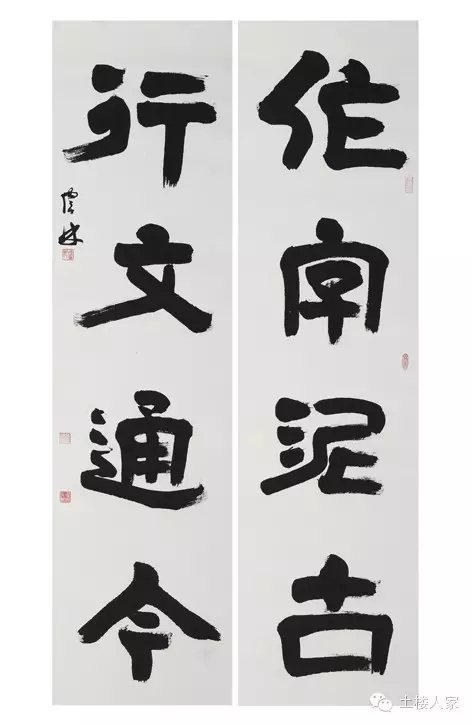 作字泥古
行文通今
土楼人家